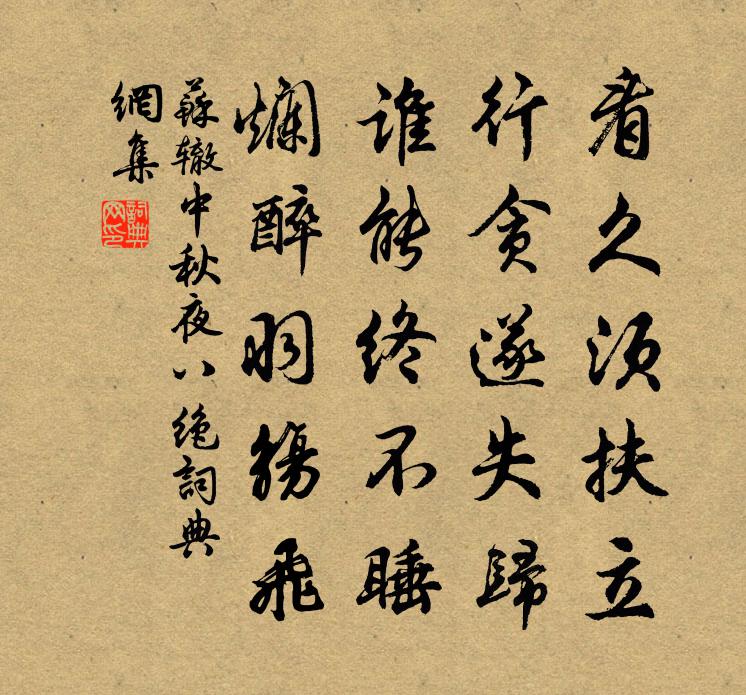 看久須扶立
行貪遂失歸
誰能終不睡
爛醉羽觴飛
蘇轍中秋夜八絶詞典
網集
詞典
网印